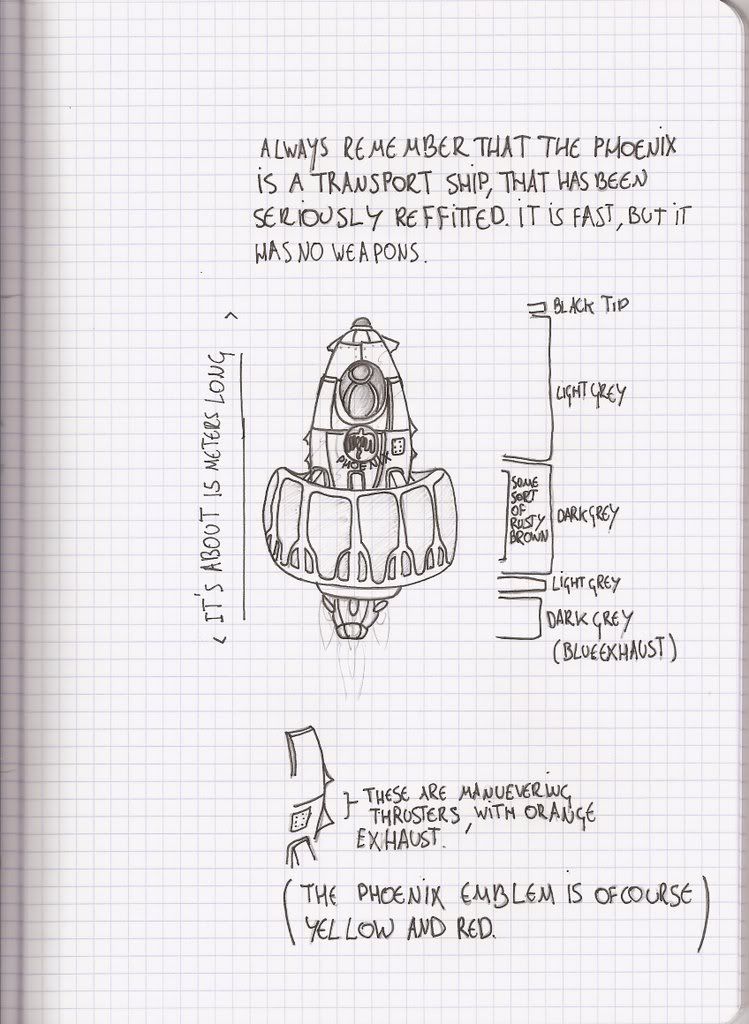 ALWAYS REMEMBER THAT THE PHOENIX
IS A TRANSPORT SHIP, THAT HAS BEEN
SERIOUSLY REFFITTED. IT IS FAST, BUT IT
HAS NO WEAPONS.
< IT'S ABOUT 15 METERS LONG >
PHOENIX
BLACK TIP
LIGHT GREY
SOME
SORT
OF
RUSTY
BROWN
DARK GREY
LIGHT GREY
DARK GREY
(BLUE EXHAUST)
THESE ARE MANUEVERING
THRUSTERS, WITH ORANGE
EXHAUST.
(THE PHOENIX EMBLEM IS OFCOURSE
YELLOW AND RED.)